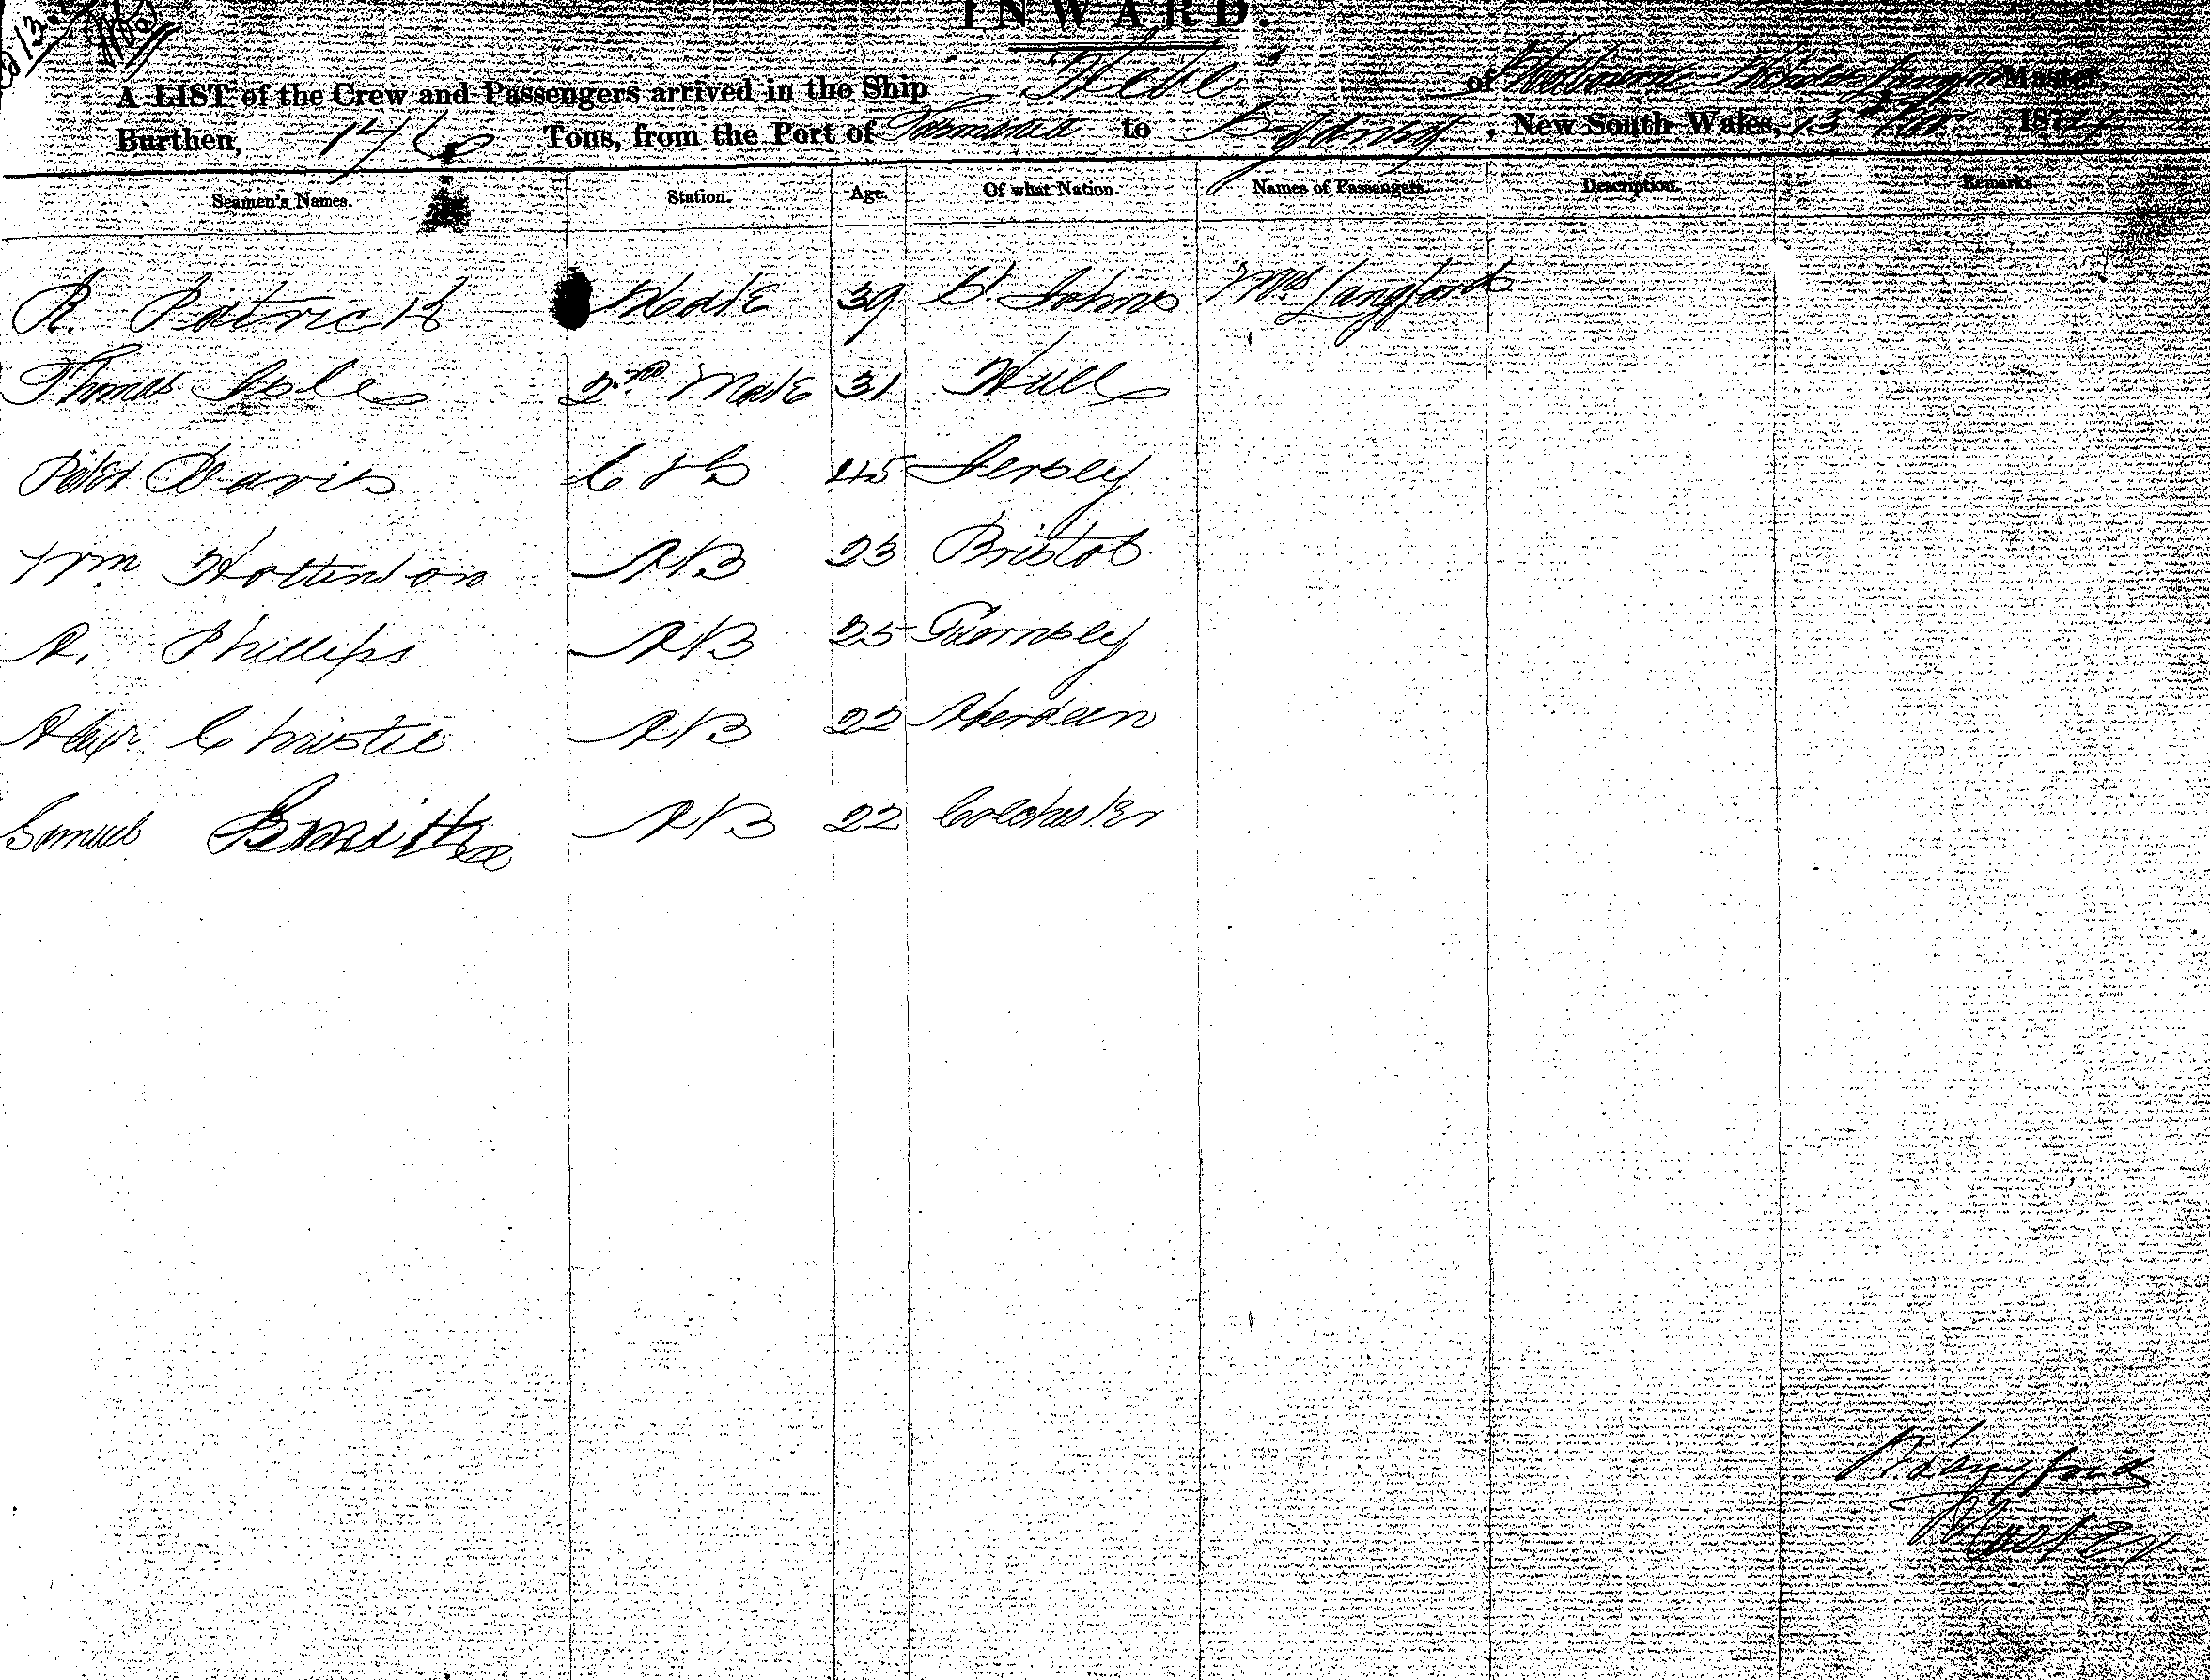 INWARD.
A LIST of the Crew and Passengers arrived in the Ship Hebe of Melbourne Master
Burthen, 146 Tons, from the Port of Tasmania to Sydney, New South Wales, 13th 187
Seamen's Names. Station. Age. Of what Nation. Names of Passengers. Description. Remarks.
R. Patrick Mate 39 St. Johns Mrs Langford
Thomas 2nd Mate 31 Hull
Peter Davis C & S 45 Jersey
Wm Hottinson AB 23 Bristol
A. Phillips AB 25 Guernsey
Alexr Christie AB 22 Aberdeen
Samuel Smith AB 22 Colchester
Langford
Master